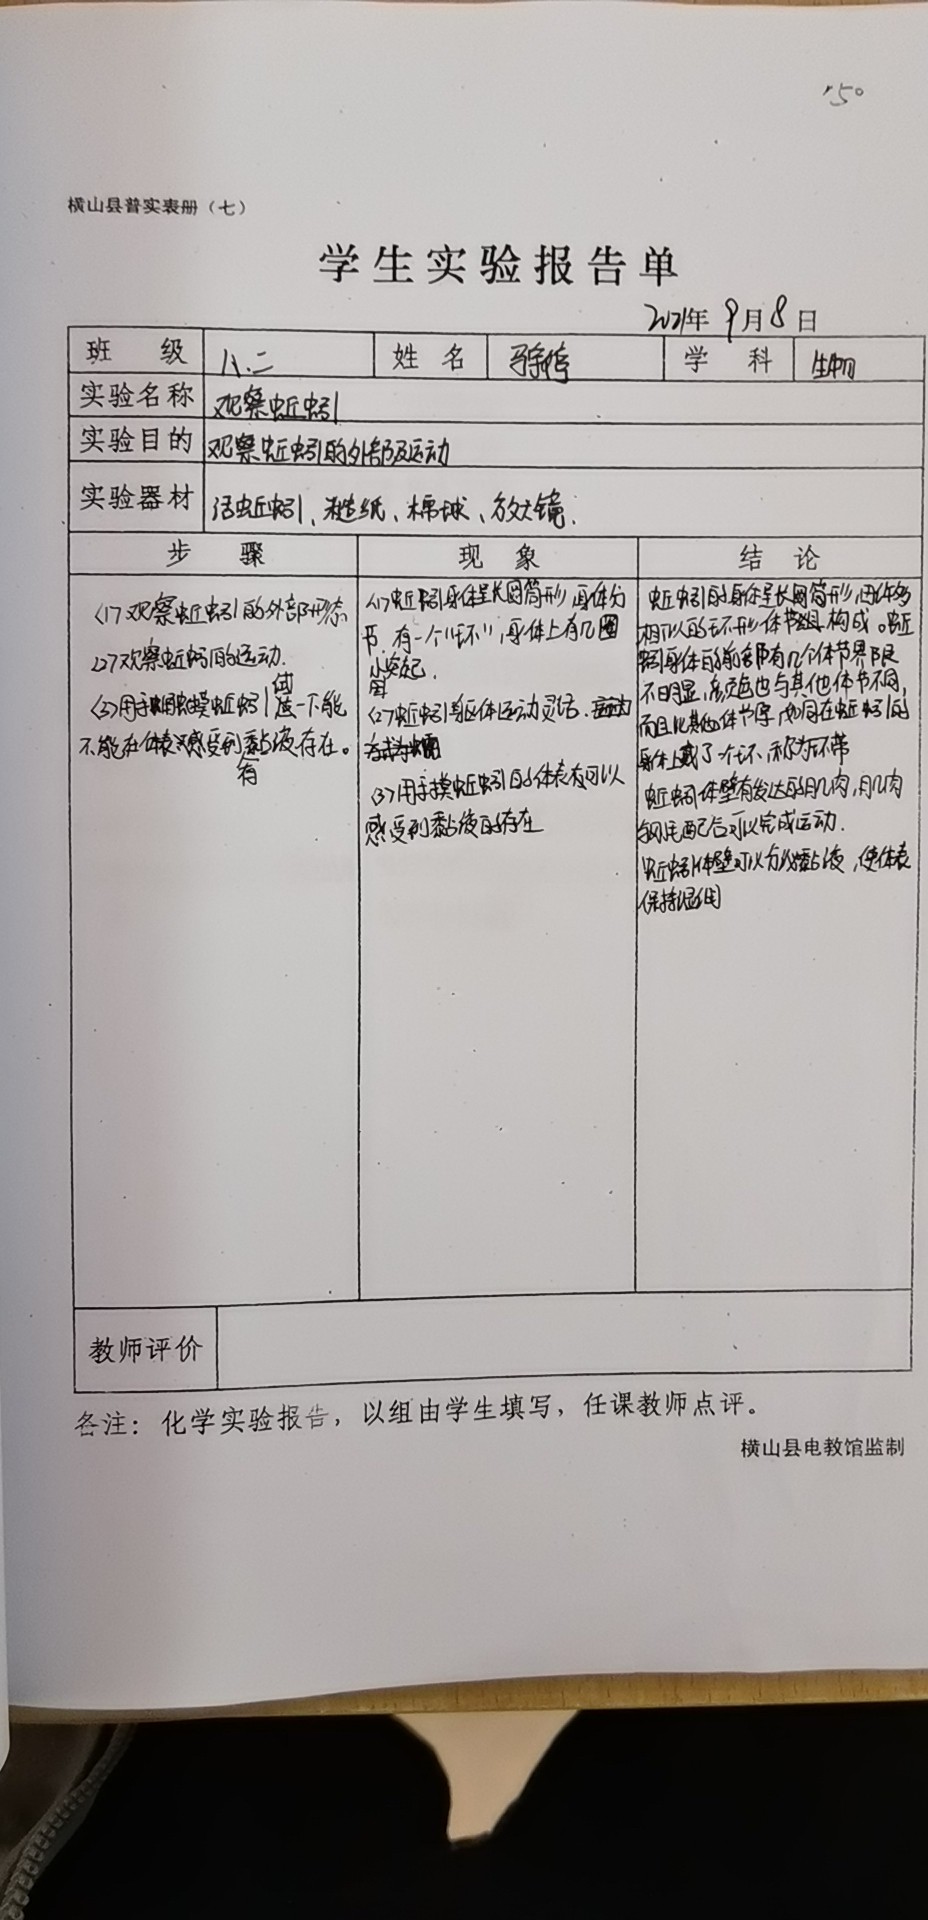 150
横山县普实表册（七）
学生实验报告单
2021年9月8日
班 级 八.二 姓 名 学 科 生物
实验名称 观察蚯蚓
实验目的 观察蚯蚓的外部及运动
实验器材 活蚯蚓、糙纸、棉球、放大镜.
步 骤
<1>观察蚯蚓的外部形态
<2>观察蚯蚓的运动.
<3>用手触摸蚯蚓试一下能
不能在体表感受到有黏液存在。
现 象
<1>蚯蚓身体呈长圆筒形,身体分
节,有一个"环",身体上有几圈
小突起.
<2>蚯蚓躯体运动灵活.
<3>用手摸蚯蚓的体表有可以
感受到黏液的存在
结 论
蚯蚓的身体呈长圆筒形,由许多
相似的环形体节组构成。蚯
蚓身体的前部有几个体节界限
不明显,颜色也与其他体节不同,
而且比其他体节厚,如同在蚯蚓的
身体上戴了一个环,称为环带
蚯蚓体壁有发达的肌肉,肌肉
与刚毛配合可以完成运动.
蚯蚓体壁可以分泌黏液,使体表
保持湿润
教师评价
备注：化学实验报告，以组由学生填写，任课教师点评。
横山县电教馆监制